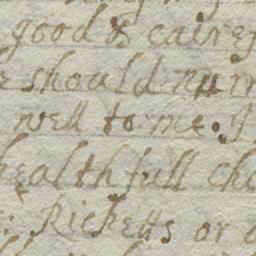 good & caire
should nurr
well to me. I
healthfull ch
: Ricketts or a